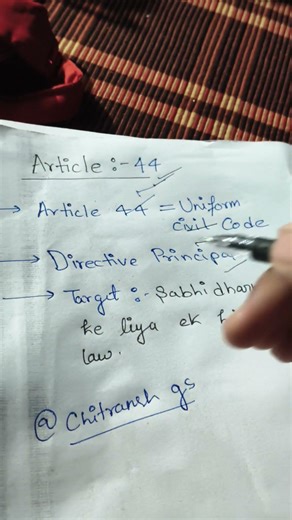 Article :- 44
→ Article 44 = Uniform
civil Code
→ Directive Principa
→ Target :- Sabhi dharm
ke liya ek
law.
@ Chitransh gs